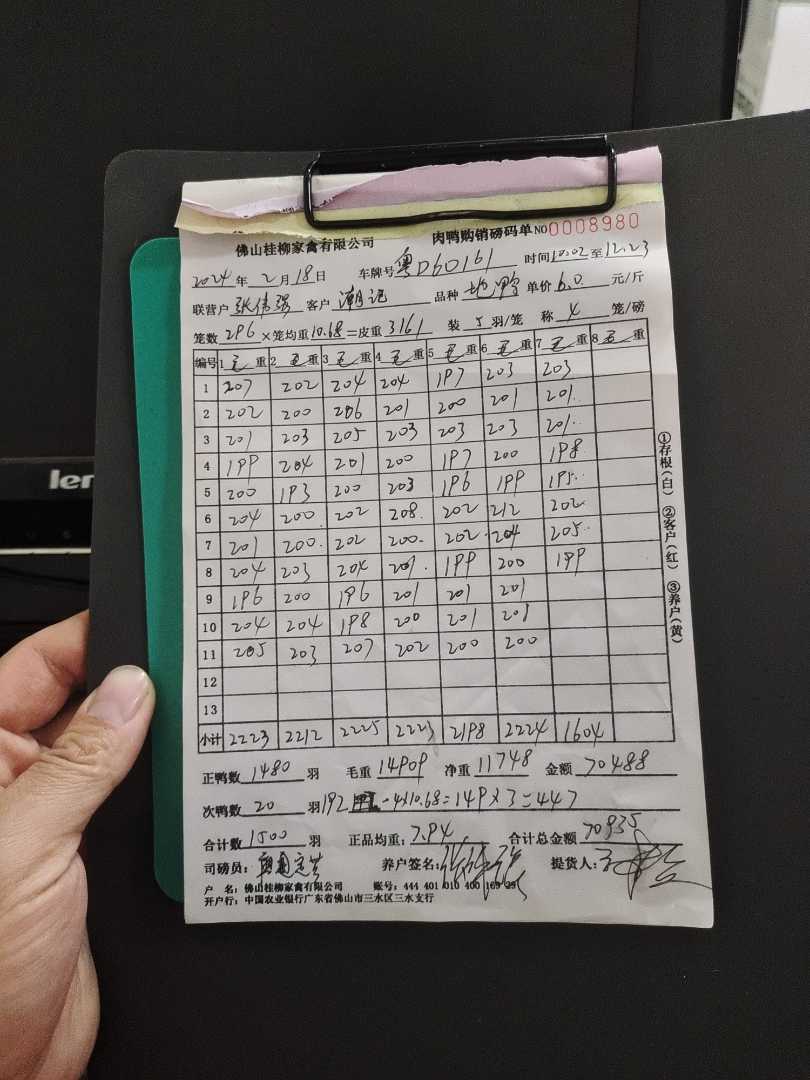 len
佛山桂柳家禽有限公司 肉鸭购销磅码单 NO0008980
2024 年 2 月 18 日 车牌号 粤D60161 时间 10:02 至 12:23
联营户 张伟强 客户 潮记 品种 地鸭 单价 6.0 元/斤
笼数 296 ×笼均重 10.68 =皮重 3161 装 5 羽/笼 称 4 笼/磅
编号 1 毛 重 2 毛 重 3 毛 重 4 毛 重 5 毛 重 6 毛 重 7 毛 重 8 毛 重
1 207 202 204 204 197 203 203
2 202 200 206 201 200 201 201
3 201 203 205 203 203 203 201
4 199 204 201 200 197 200 198
5 200 193 200 203 196 199 195
6 204 200 202 208 202 212 202
7 201 200 202 200 202 204 205
8 204 203 204 201 199 200 199
9 196 200 196 201 201 201
10 204 204 198 200 201 201
11 205 203 207 202 200 200
12
13
小计 2223 2212 2225 2223 2198 2224 1604
正鸭数 1480 羽 毛重 14909 净重 11748 金额 70488
次鸭数 20 羽 192 -4×10.68=149×3=447
合计数 1500 羽 正品均重: 7.94 合计总金额 70935
司磅员: 养户签名: 提货人:
户 名: 佛山桂柳家禽有限公司 账号: 444 401 010 400 169 29
开户行: 中国农业银行广东省佛山市三水区三水支行
①存根(白) ②客户(红) ③养户(黄)